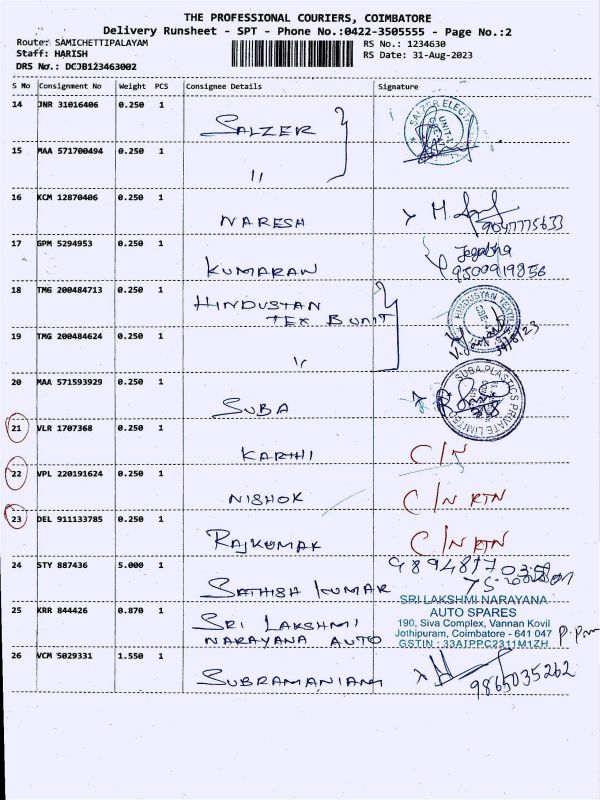 THE PROFESSIONAL COURIERS, COIMBATORE
Delivery Runsheet - SPT - Phone No.:0422-3505555 - Page No.:2
Route: SAMICHETTIPALAYAM
Staff: HARISH
DRS No.: DCJB123463002
RS No.: 1234630
RS Date: 31-Aug-2023
S No Consignment No Weight PCS Consignee Details Signature
14 JNR 31016406 0.250 1
SALZER
SALZER ELECT
UNIT-I
15 MAA 571700494 0.250 1
"
16 KCM 12870406 0.250 1
NARESH
9047775633
17 GPM 5294953 0.250 1
KUMARAN
9500919856
18 TMG 200484713 0.250 1
HINDUSTAN
TEX B UNIT
HINDUSTAN TEXTIL
19 TMG 200484624 0.250 1
"
20 MAA 571593929 0.250 1
SUBA
SUBA PLASTICS PRIVATE LIMITED
21 VLR 1707368 0.250 1
KARTHI C/N
22 VPL 220191624 0.250 1
NISHOK C/N RTN
23 DEL 911133785 0.250 1
RAJKUMAR C/N RTN
24 STY 887436 5.000 1
SATHISH KUMAR
25 KRR 844426 0.870 1
SRI LAKSHMI
NARAYANA AUTO
SRI LAKSHMI NARAYANA
AUTO SPARES
190, Siva Complex, Vannan Kovil
Jothipuram, Coimbatore - 641 047
GSTIN : 33AIPPC2311M1ZH
26 VCM 5029331 1.550 1
SUBRAMANIAM
9865035262